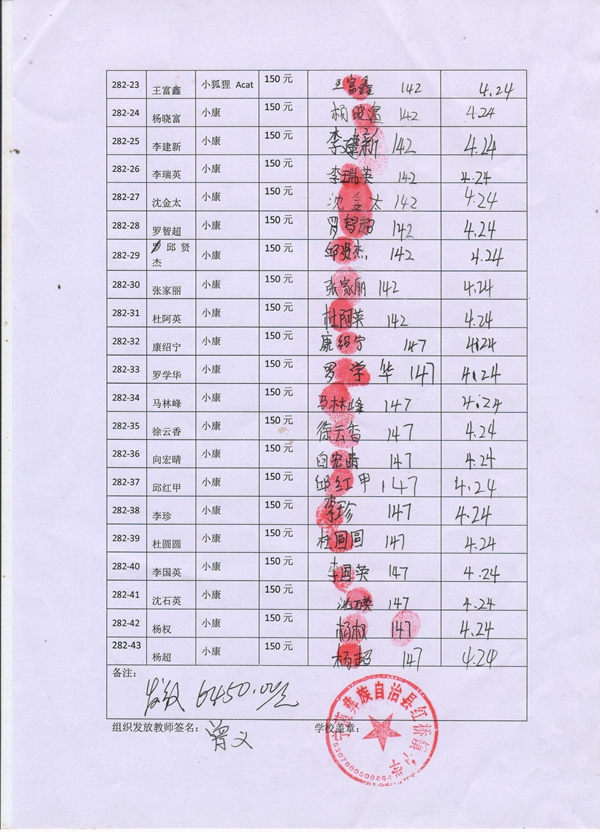 282-23 王富鑫 小狐狸 Acat 150 元 王富鑫 142 4.24
282-24 杨晓富 小康 150 元 杨晓富 142 4.24
282-25 李建新 小康 150 元 李建新 142 4.24
282-26 李瑞英 小康 150 元 李瑞英 142 4.24
282-27 沈金太 小康 150 元 沈金太 142 4.24
282-28 罗智超 小康 150 元 罗智超 142 4.24
282-29 邱贤杰 小康 150 元 邱贤杰 142 4.24
282-30 张家丽 小康 150 元 张家丽 142 4.24
282-31 杜阿英 小康 150 元 杜阿英 142 4.24
282-32 康绍宁 小康 150 元 康绍宁 147 4.24
282-33 罗学华 小康 150 元 罗学华 147 4.24
282-34 马林峰 小康 150 元 马林峰 147 4.24
282-35 徐云香 小康 150 元 徐云香 147 4.24
282-36 向宏晴 小康 150 元 向宏晴 147 4.24
282-37 邱红甲 小康 150 元 邱红甲 147 4.24
282-38 李珍 小康 150 元 李珍 147 4.24
282-39 杜圆圆 小康 150 元 杜圆圆 147 4.24
282-40 李国英 小康 150 元 李国英 147 4.24
282-41 沈石英 小康 150 元 沈石英 147 4.24
282-42 杨权 小康 150 元 杨权 147 4.24
282-43 杨超 小康 150 元 杨超 147 4.24
备注：
6450.00元
组织发放教师签名： 曾义 学校盖章：
宁蒗彝族自治县红桥镇